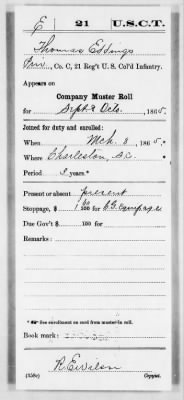 E 21 U.S.C.T.
Thomas Eddings
Priv, Co. C, 21 Reg't U. S. Col'd Infantry.
Appears on
Company Muster Roll
for Sept & Octo., 1865.
Joined for duty and enrolled:
When Mch 8, 1865.
Where Charleston, S.C.
Period 3 years.*
Present or absent present
Stoppage, $ 1 00/100 for C. G. Equipage
Due Gov't $ 100 for
Remarks:
* See enrollment on card from muster-in roll.
Book mark:
R. E. Wilson
(358c) Copyist.